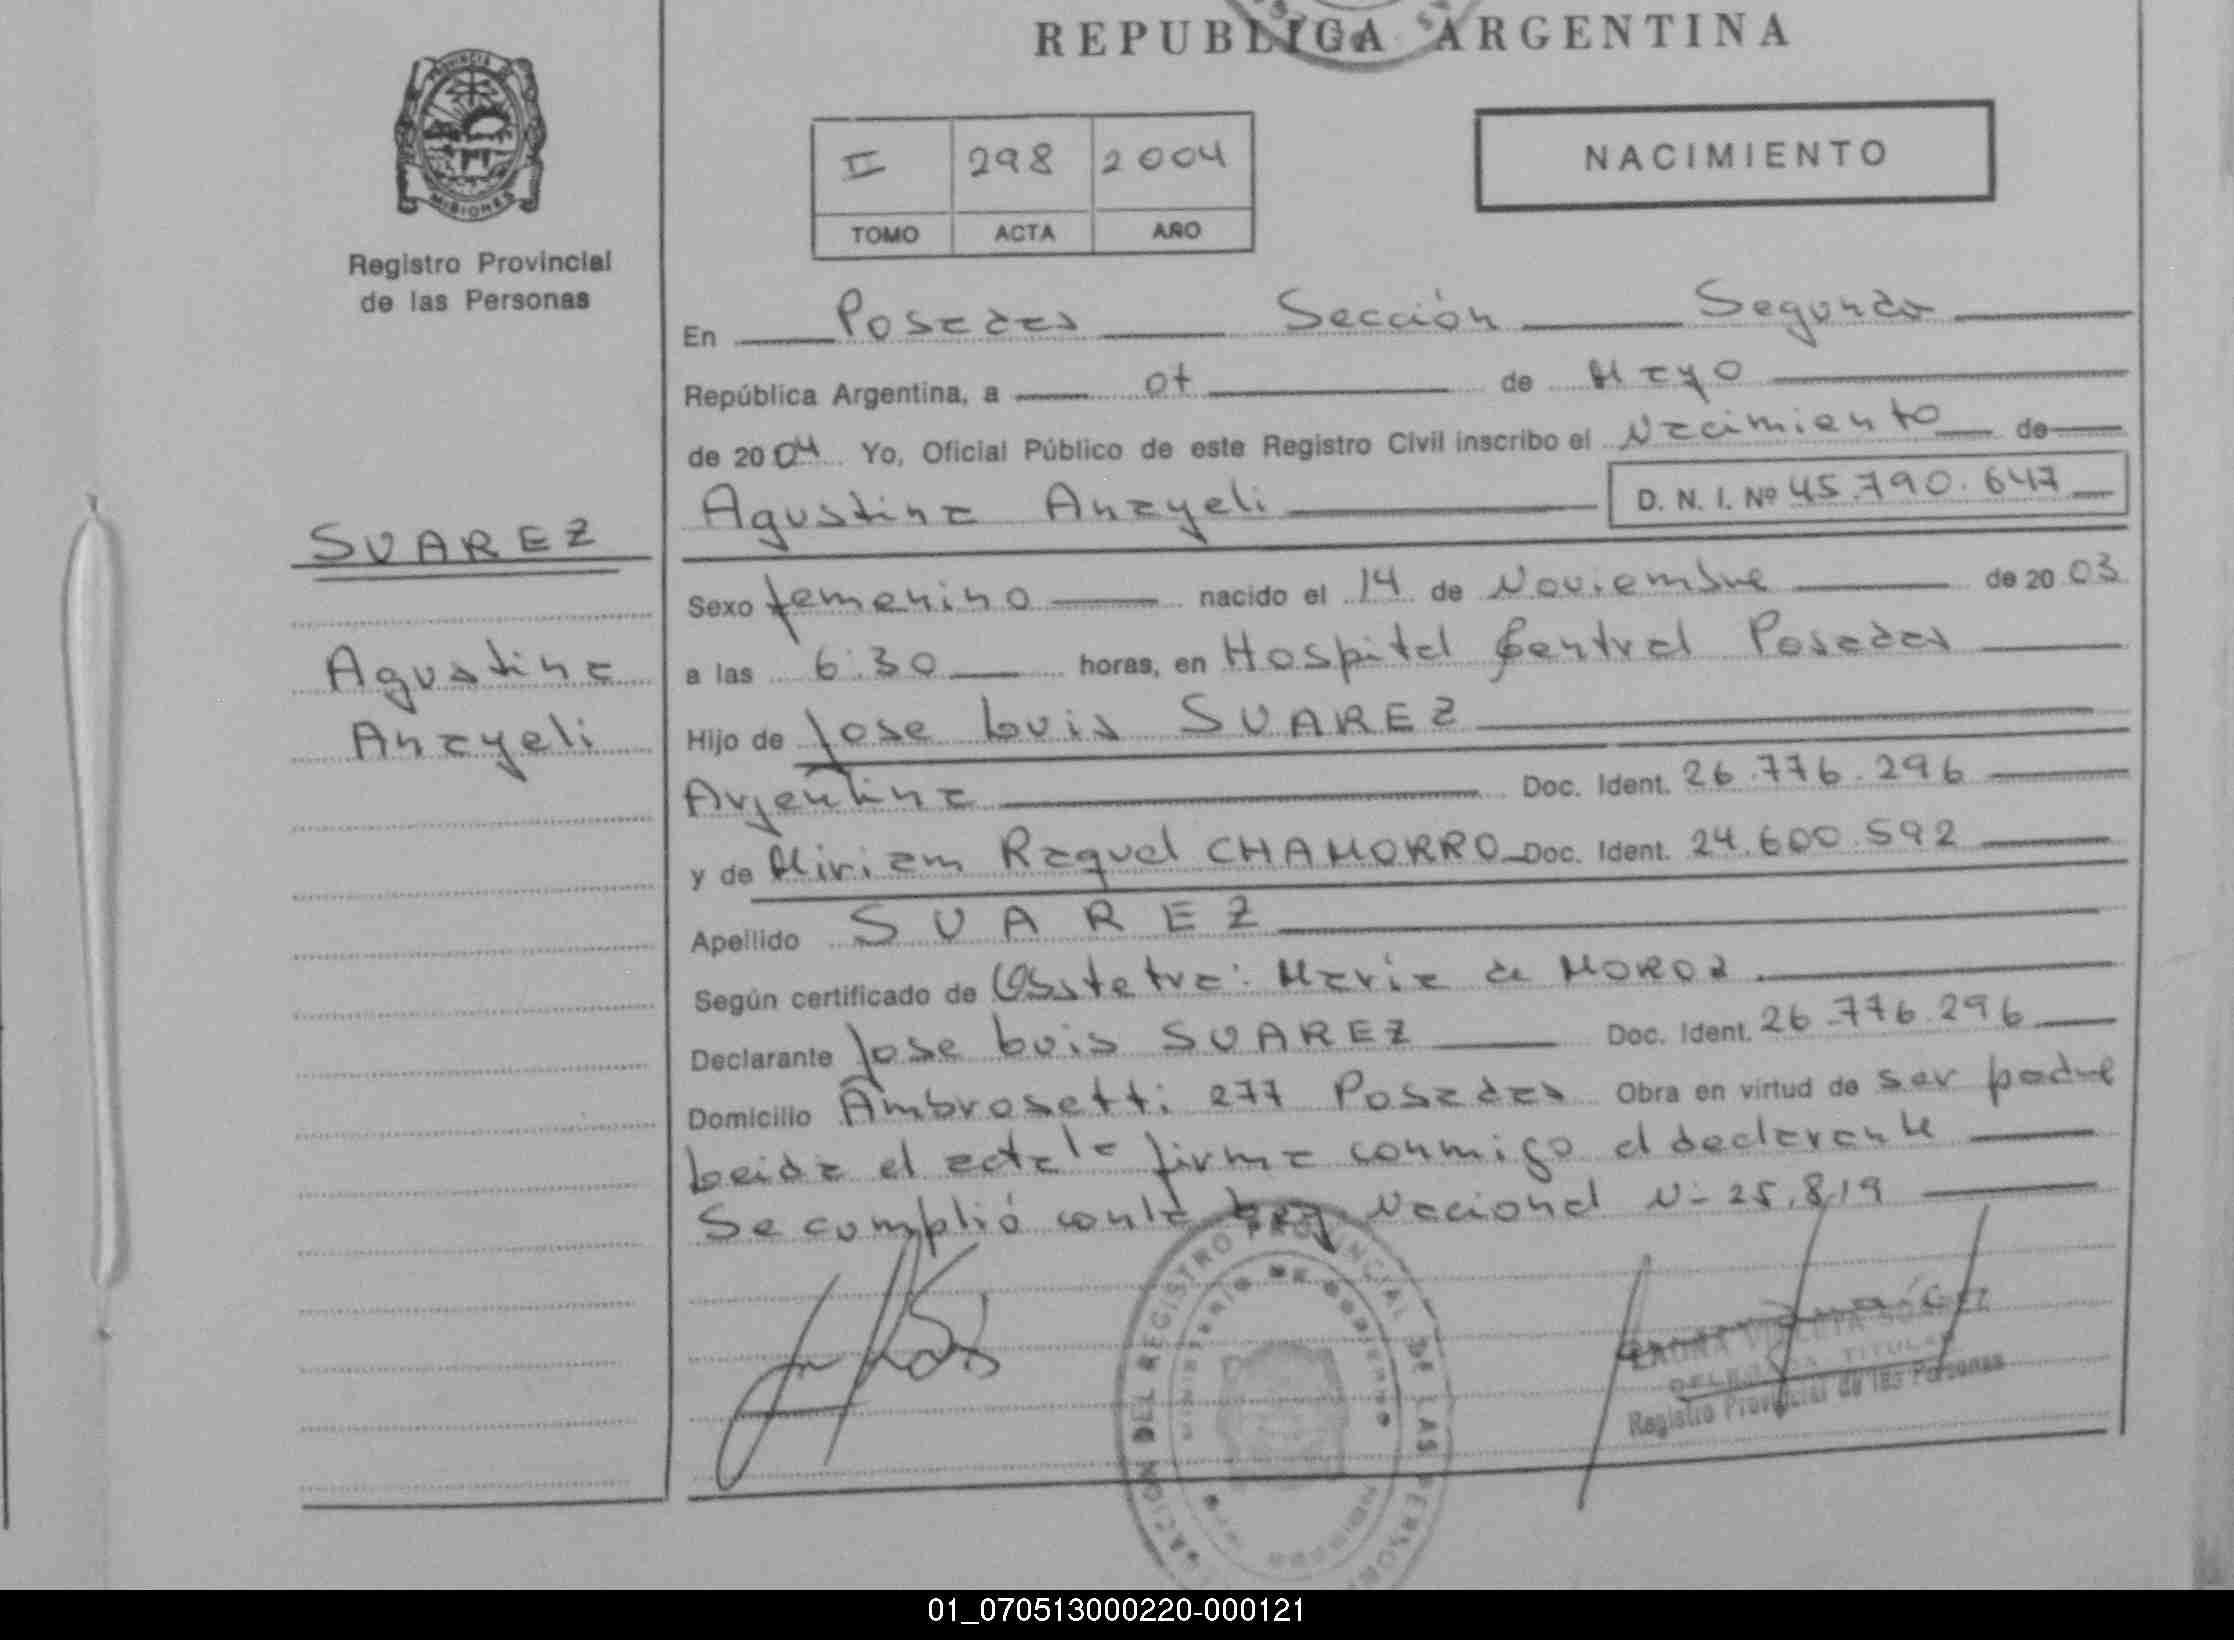 REPUBLICA ARGENTINA
PROVINCIA DE
MISIONES
Registro Provincial
de las Personas
II 298 2004
TOMO ACTA AÑO
NACIMIENTO
En Posadas Sección Segunda
República Argentina, a 07 de Mayo
de 2004 Yo, Oficial Público de este Registro Civil inscribo el Nacimiento de
Agustina Anayeli D. N. I. Nº 45.790.647
SUAREZ
Agustina
Anayeli
Sexo femenino nacido el 14 de Noviembre de 2003
a las 6:30 horas, en Hospital Central Posadas
Hijo de Jose Luis SUAREZ
Argentina Doc. Ident. 26.776.296
y de Miriam Raquel CHAMORRO Doc. Ident. 24.600.592
Apellido SUAREZ
Según certificado de Obstetra: Maria de MOROZ
Declarante Jose Luis SUAREZ Doc. Ident. 26.776.296
Domicilio Ambrosetti 277 Posadas Obra en virtud de ser padre
Leida el acta la firma conmigo el declarante
Se cumplió con la Ley Nacional N- 25.819
DEL REGISTRO PROVINCIAL DE LAS PERSONAS
MINISTERIO DE GOBIERNO
MISIONES
TITULAR
Registro Provincial de las Personas
01_070513000220-000121